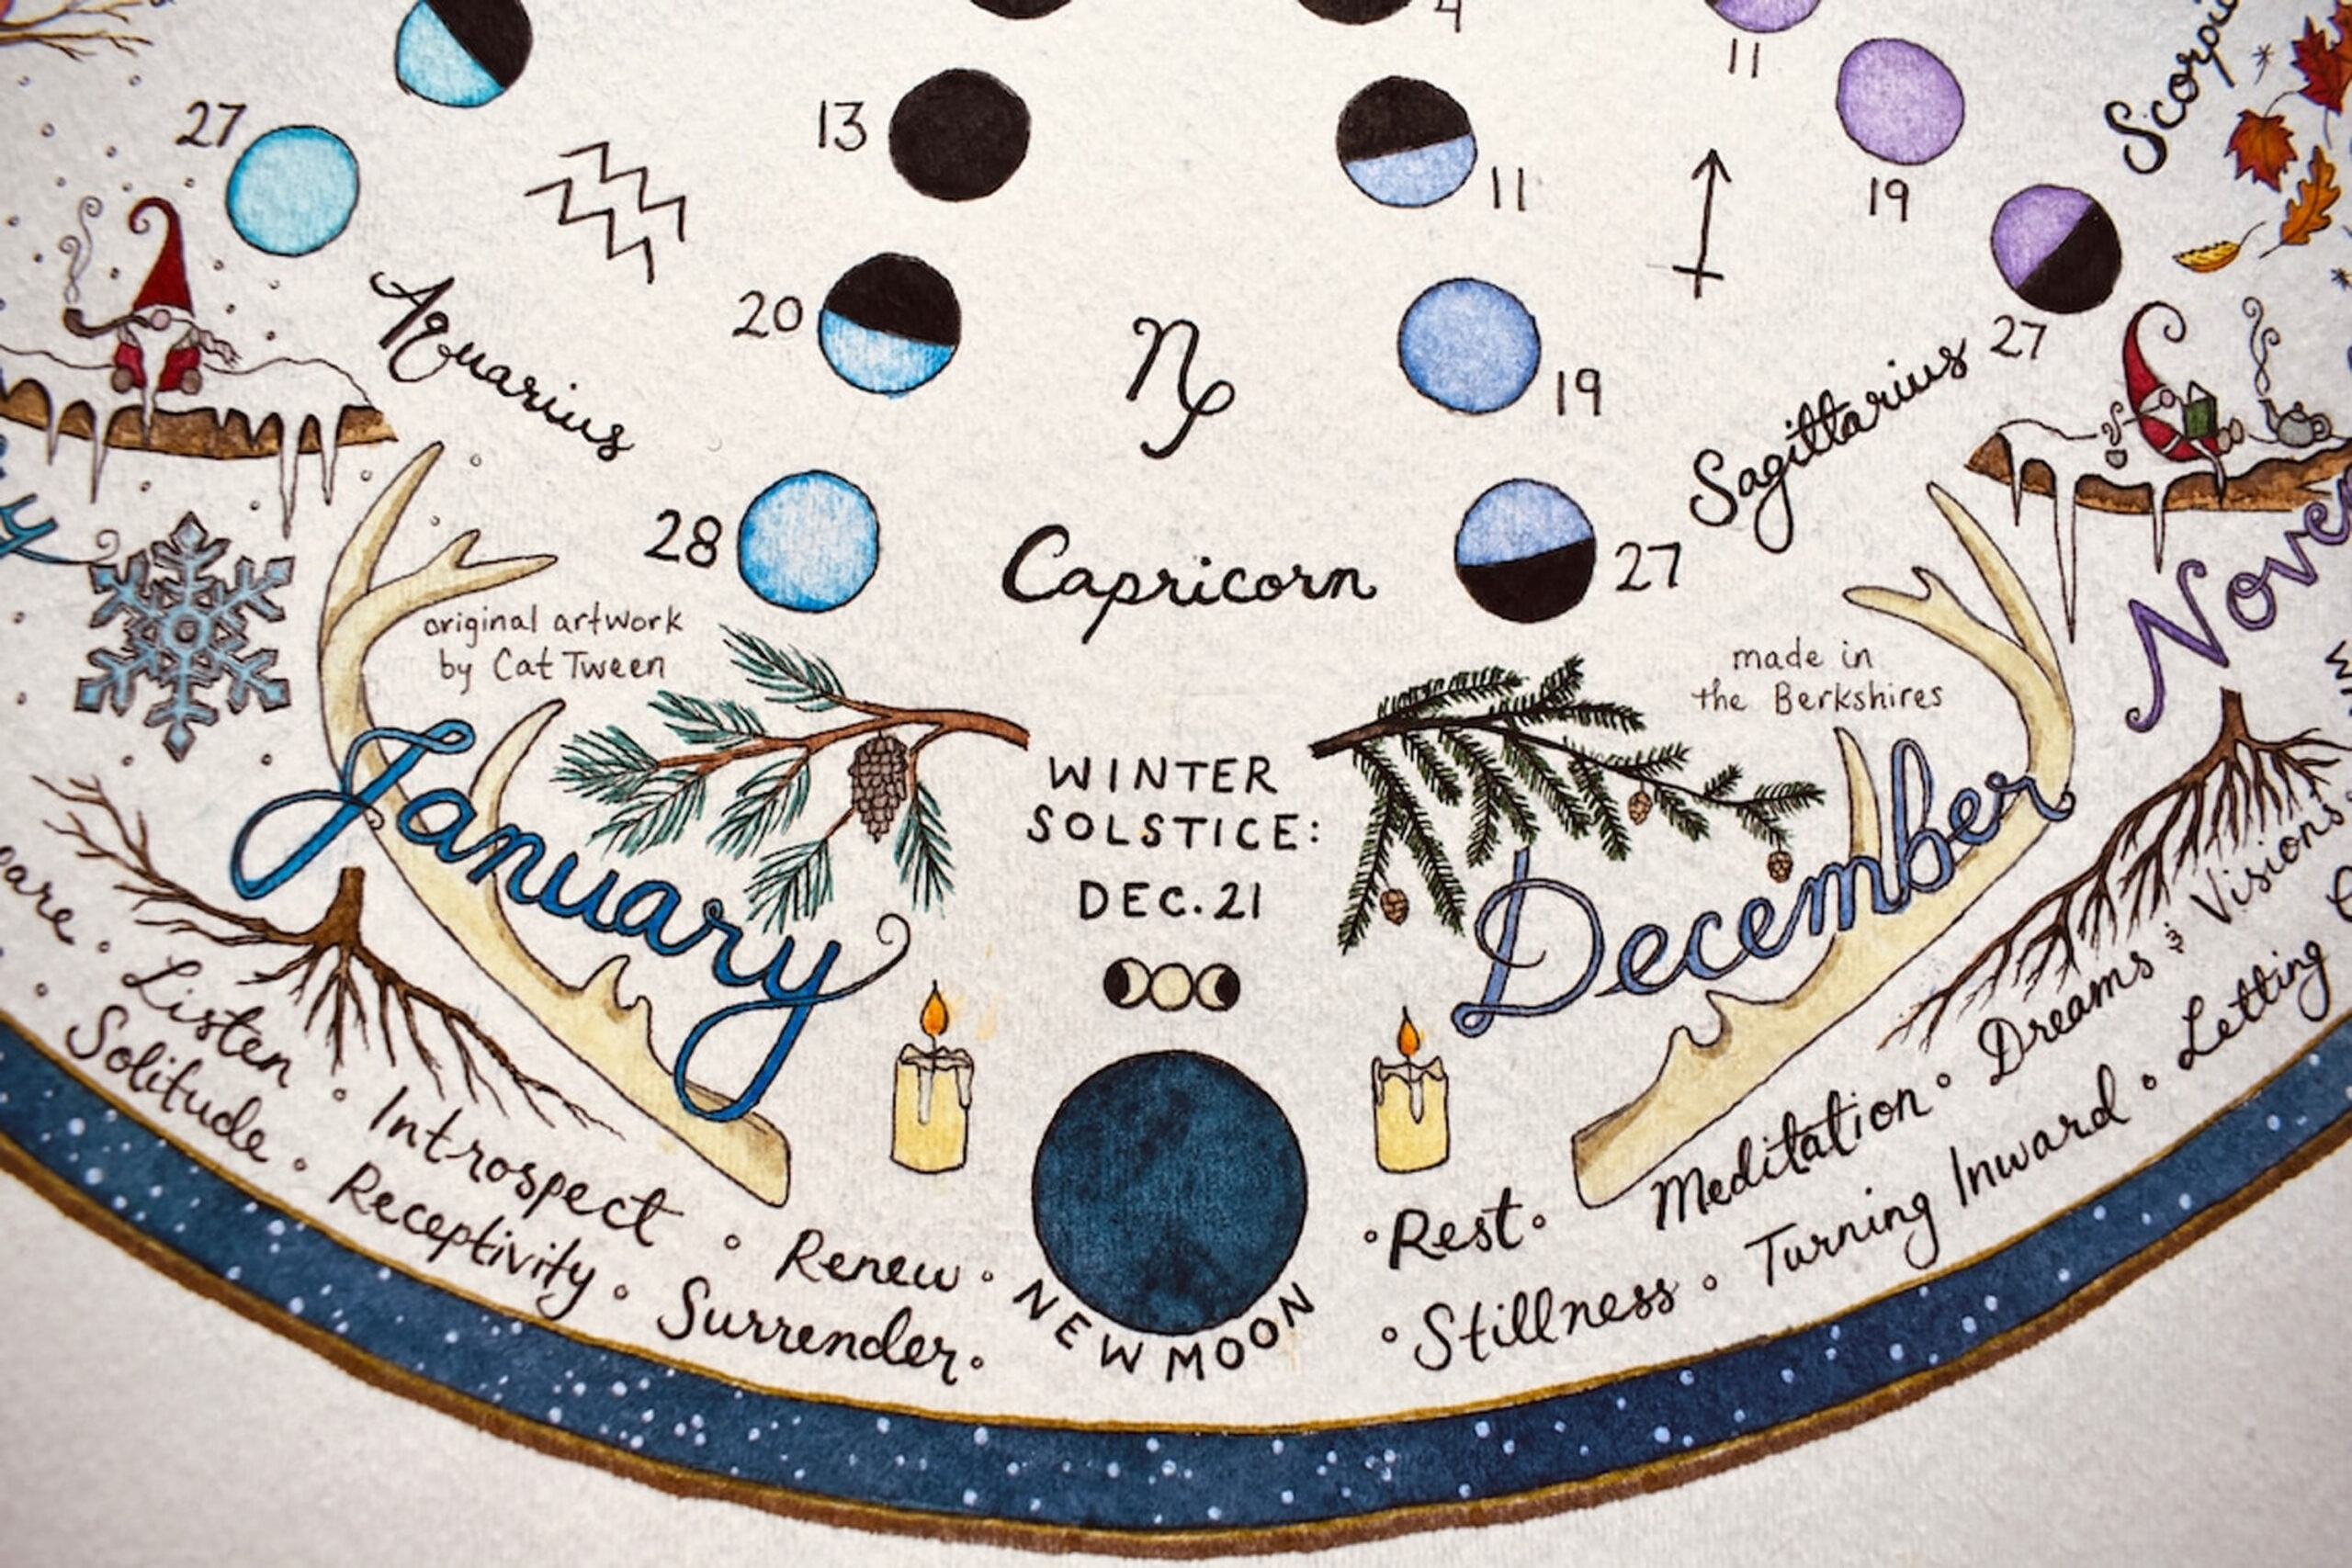 4
11
Scorpi
27
13
11
19
20
19
27
Aquarius
Sagittarius
28
Capricorn
27
original artwork
by Cat Tween
made in
the Berkshires
Novem
January
WINTER
SOLSTICE:
DEC. 21
December
Listen ∘ Introspect ∘ Renew ∘
Solitude ∘ Receptivity ∘ Surrender ∘
NEW MOON
∘ Rest ∘ Meditation ∘ Dreams & Visions
∘ Stillness ∘ Turning Inward ∘ Letting